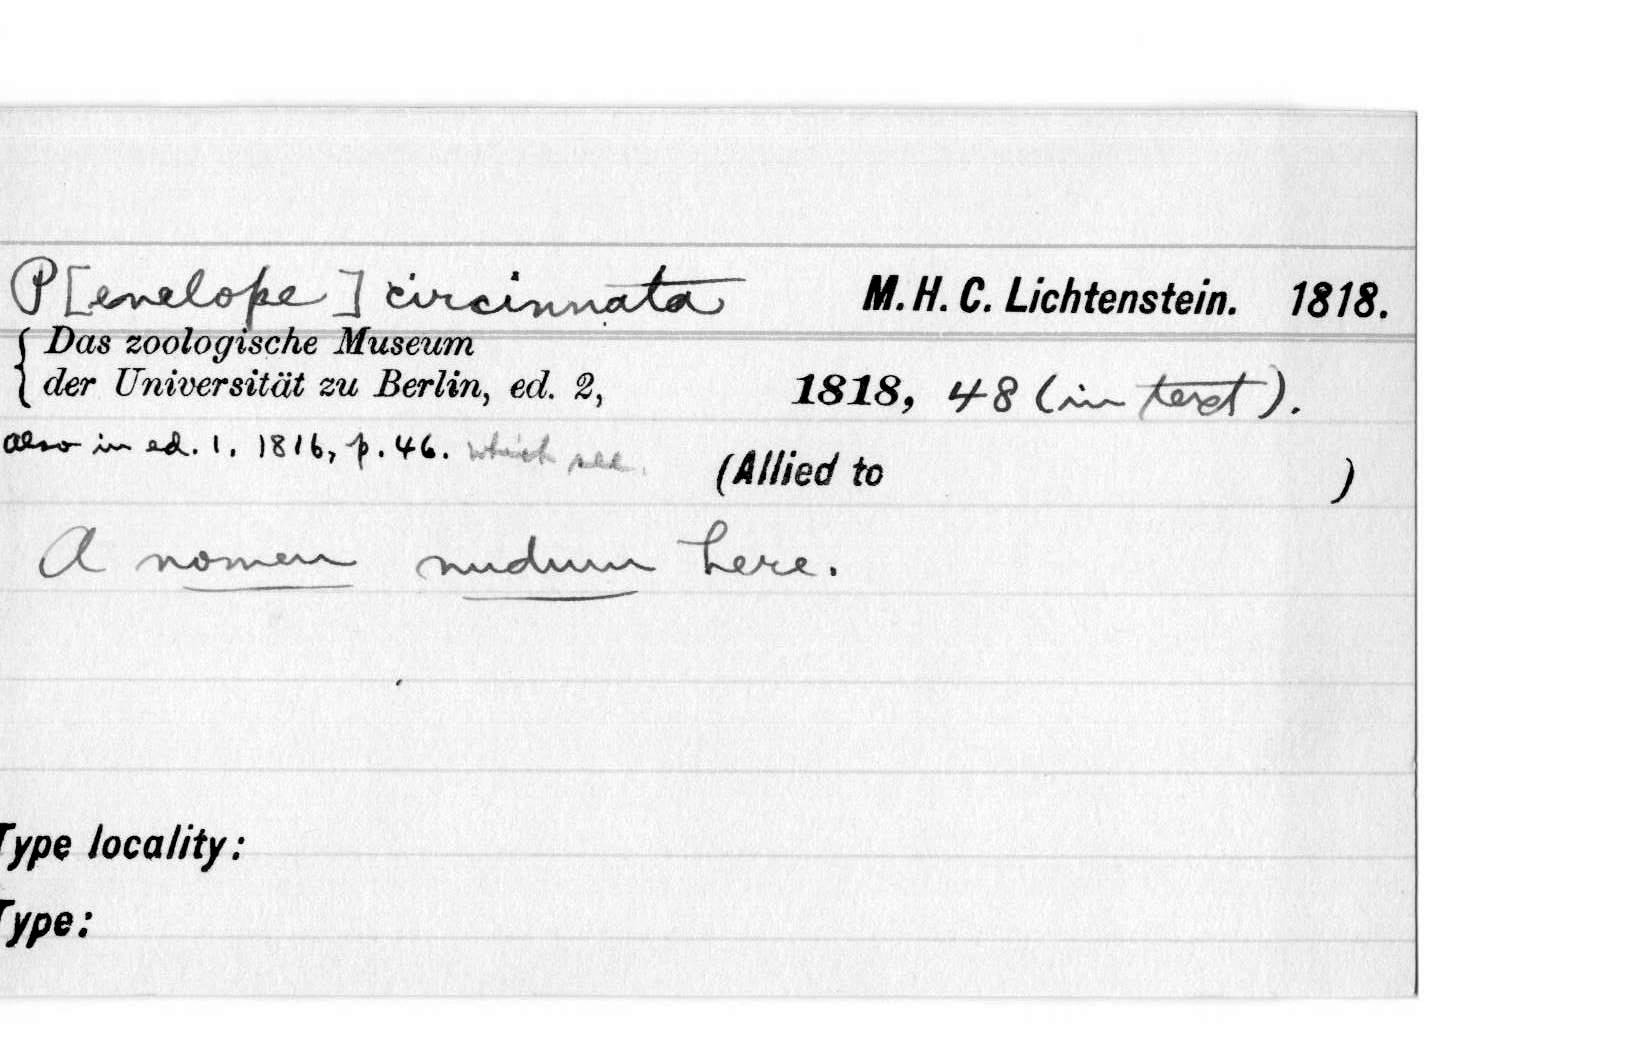 P[enelope] circinnata M. H. C. Lichtenstein. 1818.
Das zoologische Museum
der Universität zu Berlin, ed. 2, 1818, 48 (in text).
also in ed. 1, 1816, p. 46. which see.
(Allied to )
A nomen nudum here.
Type locality:
Type: